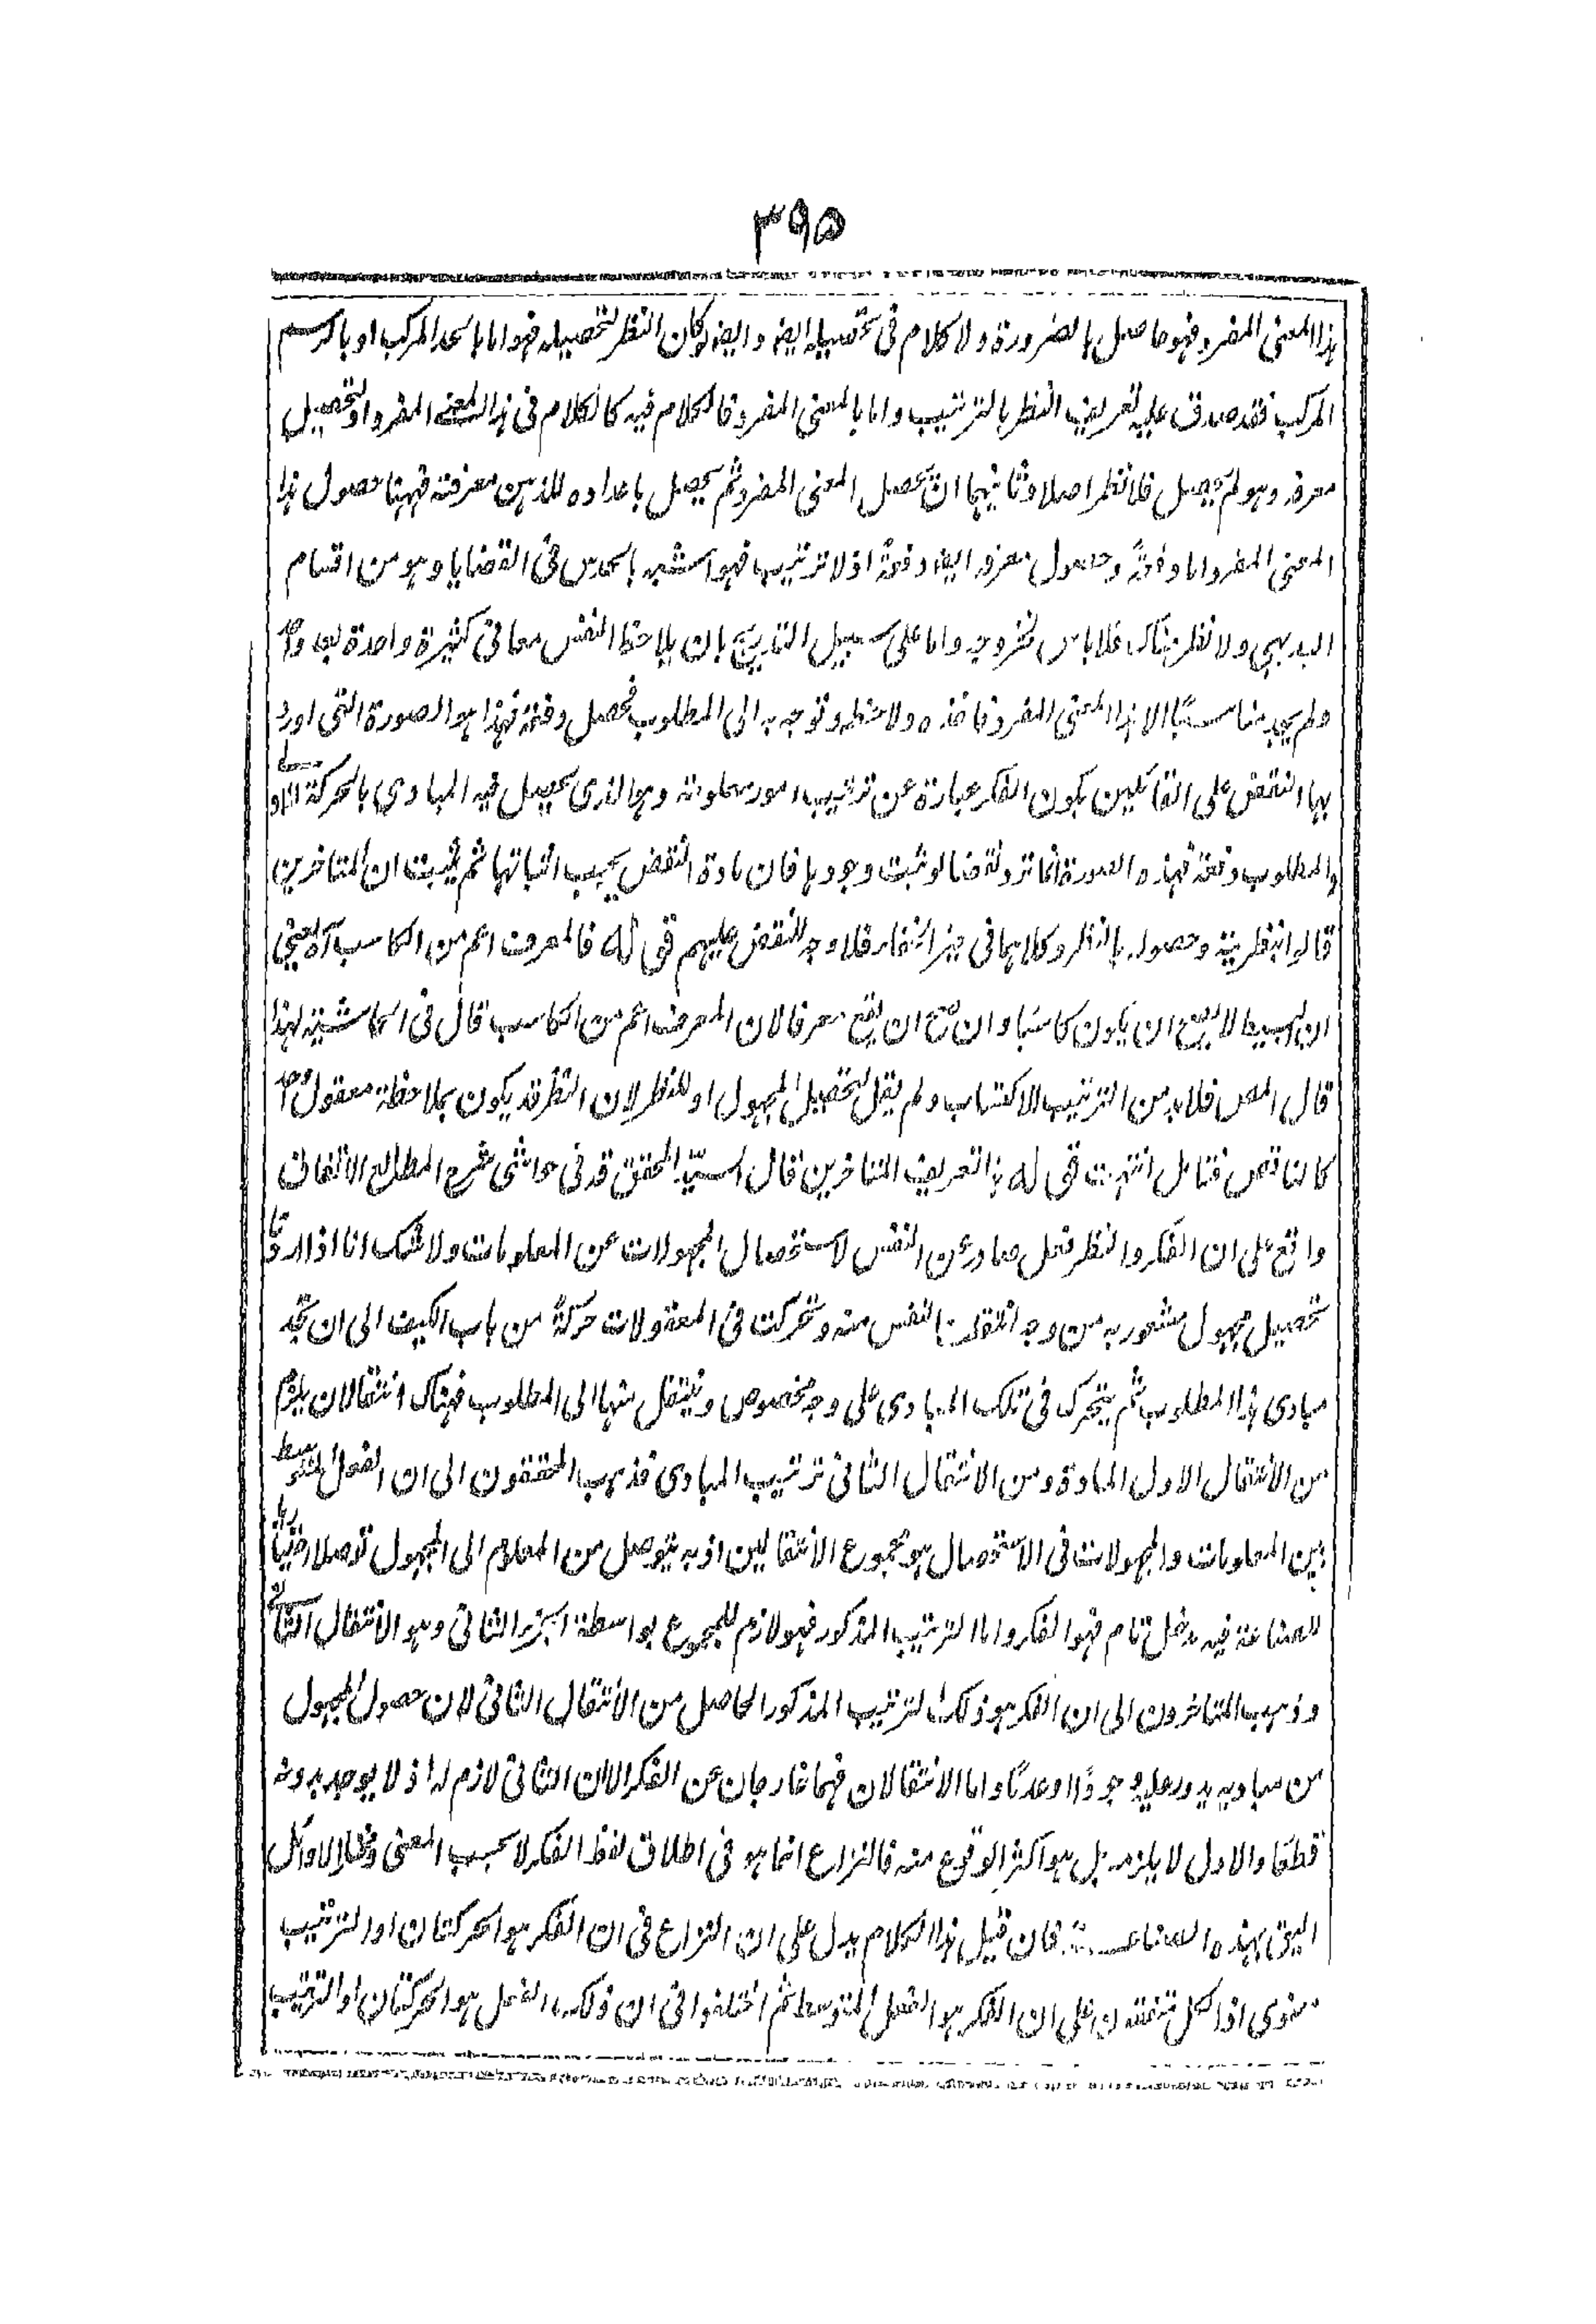 ٣٩۵
هذا المعنى المفرد فهو حاصل بالضرورة ولا كلام فى تحصيله ايضا وايضا لو كان النظر لتحصيله فهو اما بالحد المركب او بالرسم
المركب فقد صدق عليه تعريف النظر بالترتيب واما بالمعنى المفرد فالكلام فيه كالكلام فى هذا المعنى المفرد او لتحصيل
معرفه وهو لم يحصل فلا نظر اصلا وثانيهما ان يحصل المعنى المفرد ثم يحصل باعداده للذهن معرفته فههنا حصول هذا
المعنى المفرد اما دفعةً وحصول معرفه ايضا دفعةً اذ لا ترتيب فهو اشبه بالحدس فى القضايا وهو من اقسام
البديهى ولا نظر هناك فلا باس بخروجه واما على سبيل التدريج بان يلاحظ النفس معانى كثيرة واحدة بعد واحد
ولم يجد مناسبًا الا هذا المعنى المفرد فاخذه ولاحظه وتوجه به الى المطلوب فحصل دفعة فهذا هو الصورة التى اورد
بها النقض على القائلين بكون الفكر عبارة عن ترتيب امور معلومة وهو الذى يحصل فيه المبادى بالحركة الاولى
والمطلوب دفعة فهذه الصورة انما ترد نقضا لو ثبت وجودها فان مادة النقض يجب اثباتها ثم يثبت ان المتاخرين
قالوا بنظريته وحصوله بالنظر وكلاهما فى حيز الخفاء فلا وجه للنقض عليهم قوله فالمعرف اعم من الكاسب آه يعنى
ان البسيط لا يصح ان يكون كاسبًا وان صح ان يقع معرفا لان المعرف اعم من الكاسب قال فى الحاشية لهذا
قال المص فلا بد من الترتيب للاكتساب ولم يقل لتحصيل المجهول او للنظر لان النظر قد يكون بملاحظة معقول واحد
كالناقص فتامل انتهت قوله هذا تعريف المتاخرين قال السيّد المحقق قد فى حواشى شرح المطالع الاتفاق
واقع على ان الفكر والنظر فعل صادر عن النفس لاستحصال المجهولات عن المعلومات ولا شك انا اذا اردنا
تحصيل مجهول مشعور به من وجه انتقلت النفس منه وتحركت فى المعقولات حركةً من باب الكيف الى ان تجد
مبادى هذا المطلوب ثم يتحرك فى تلك المبادى على وجه مخصوص وينتقل منها الى المطلوب فهناك انتقالان يلزم
من الانتقال الاول المادة ومن الانتقال الثانى ترتيب المبادى فذهب المحققون الى ان الفعل المتوسط
بين المعلومات والمجهولات فى الاستحصال هو مجموع الانتقالين اذ به يتوصل من المعلوم الى المجهول توصلا اختياريا
للصناعة فيه مدخل تام فهو الفكر واما الترتيب المذكور فهو لازم للمجموع بواسطة الجزء الثانى وهو الانتقال الثانى
وذهب المتاخرون الى ان الفكر هو ذلك الترتيب المذكور الحاصل من الانتقال الثانى لان حصول المجهول
من مباديه يدور عليه وجودًا وعدمًا واما الانتقالان فهما خارجان عن الفكر الا ان الثانى لازم له اذ لا يوجد بدونه
قطعًا والاول لا يلزمه بل هو اكثر الوقوع منه فالنزاع انما هو فى اطلاق لفظ الفكر لا بحسب المعنى ومختار الاوائل
اليق بهذه الصناعة فان قيل هذا الكلام يدل على ان النزاع فى ان الفكر هو الحركتان او الترتيب
معنوى اذ الكل متفقون على ان الفكر هو الفعل المتوسط ثم اختلفوا فى ان ذلك الفعل هو الحركتان او الترتيب